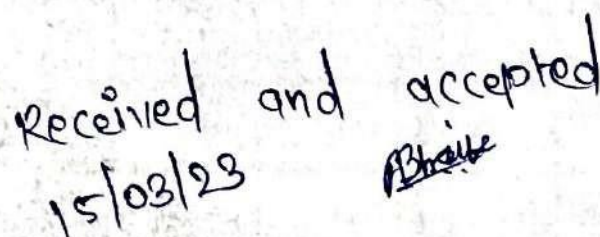 Received and accepted
15/03/23